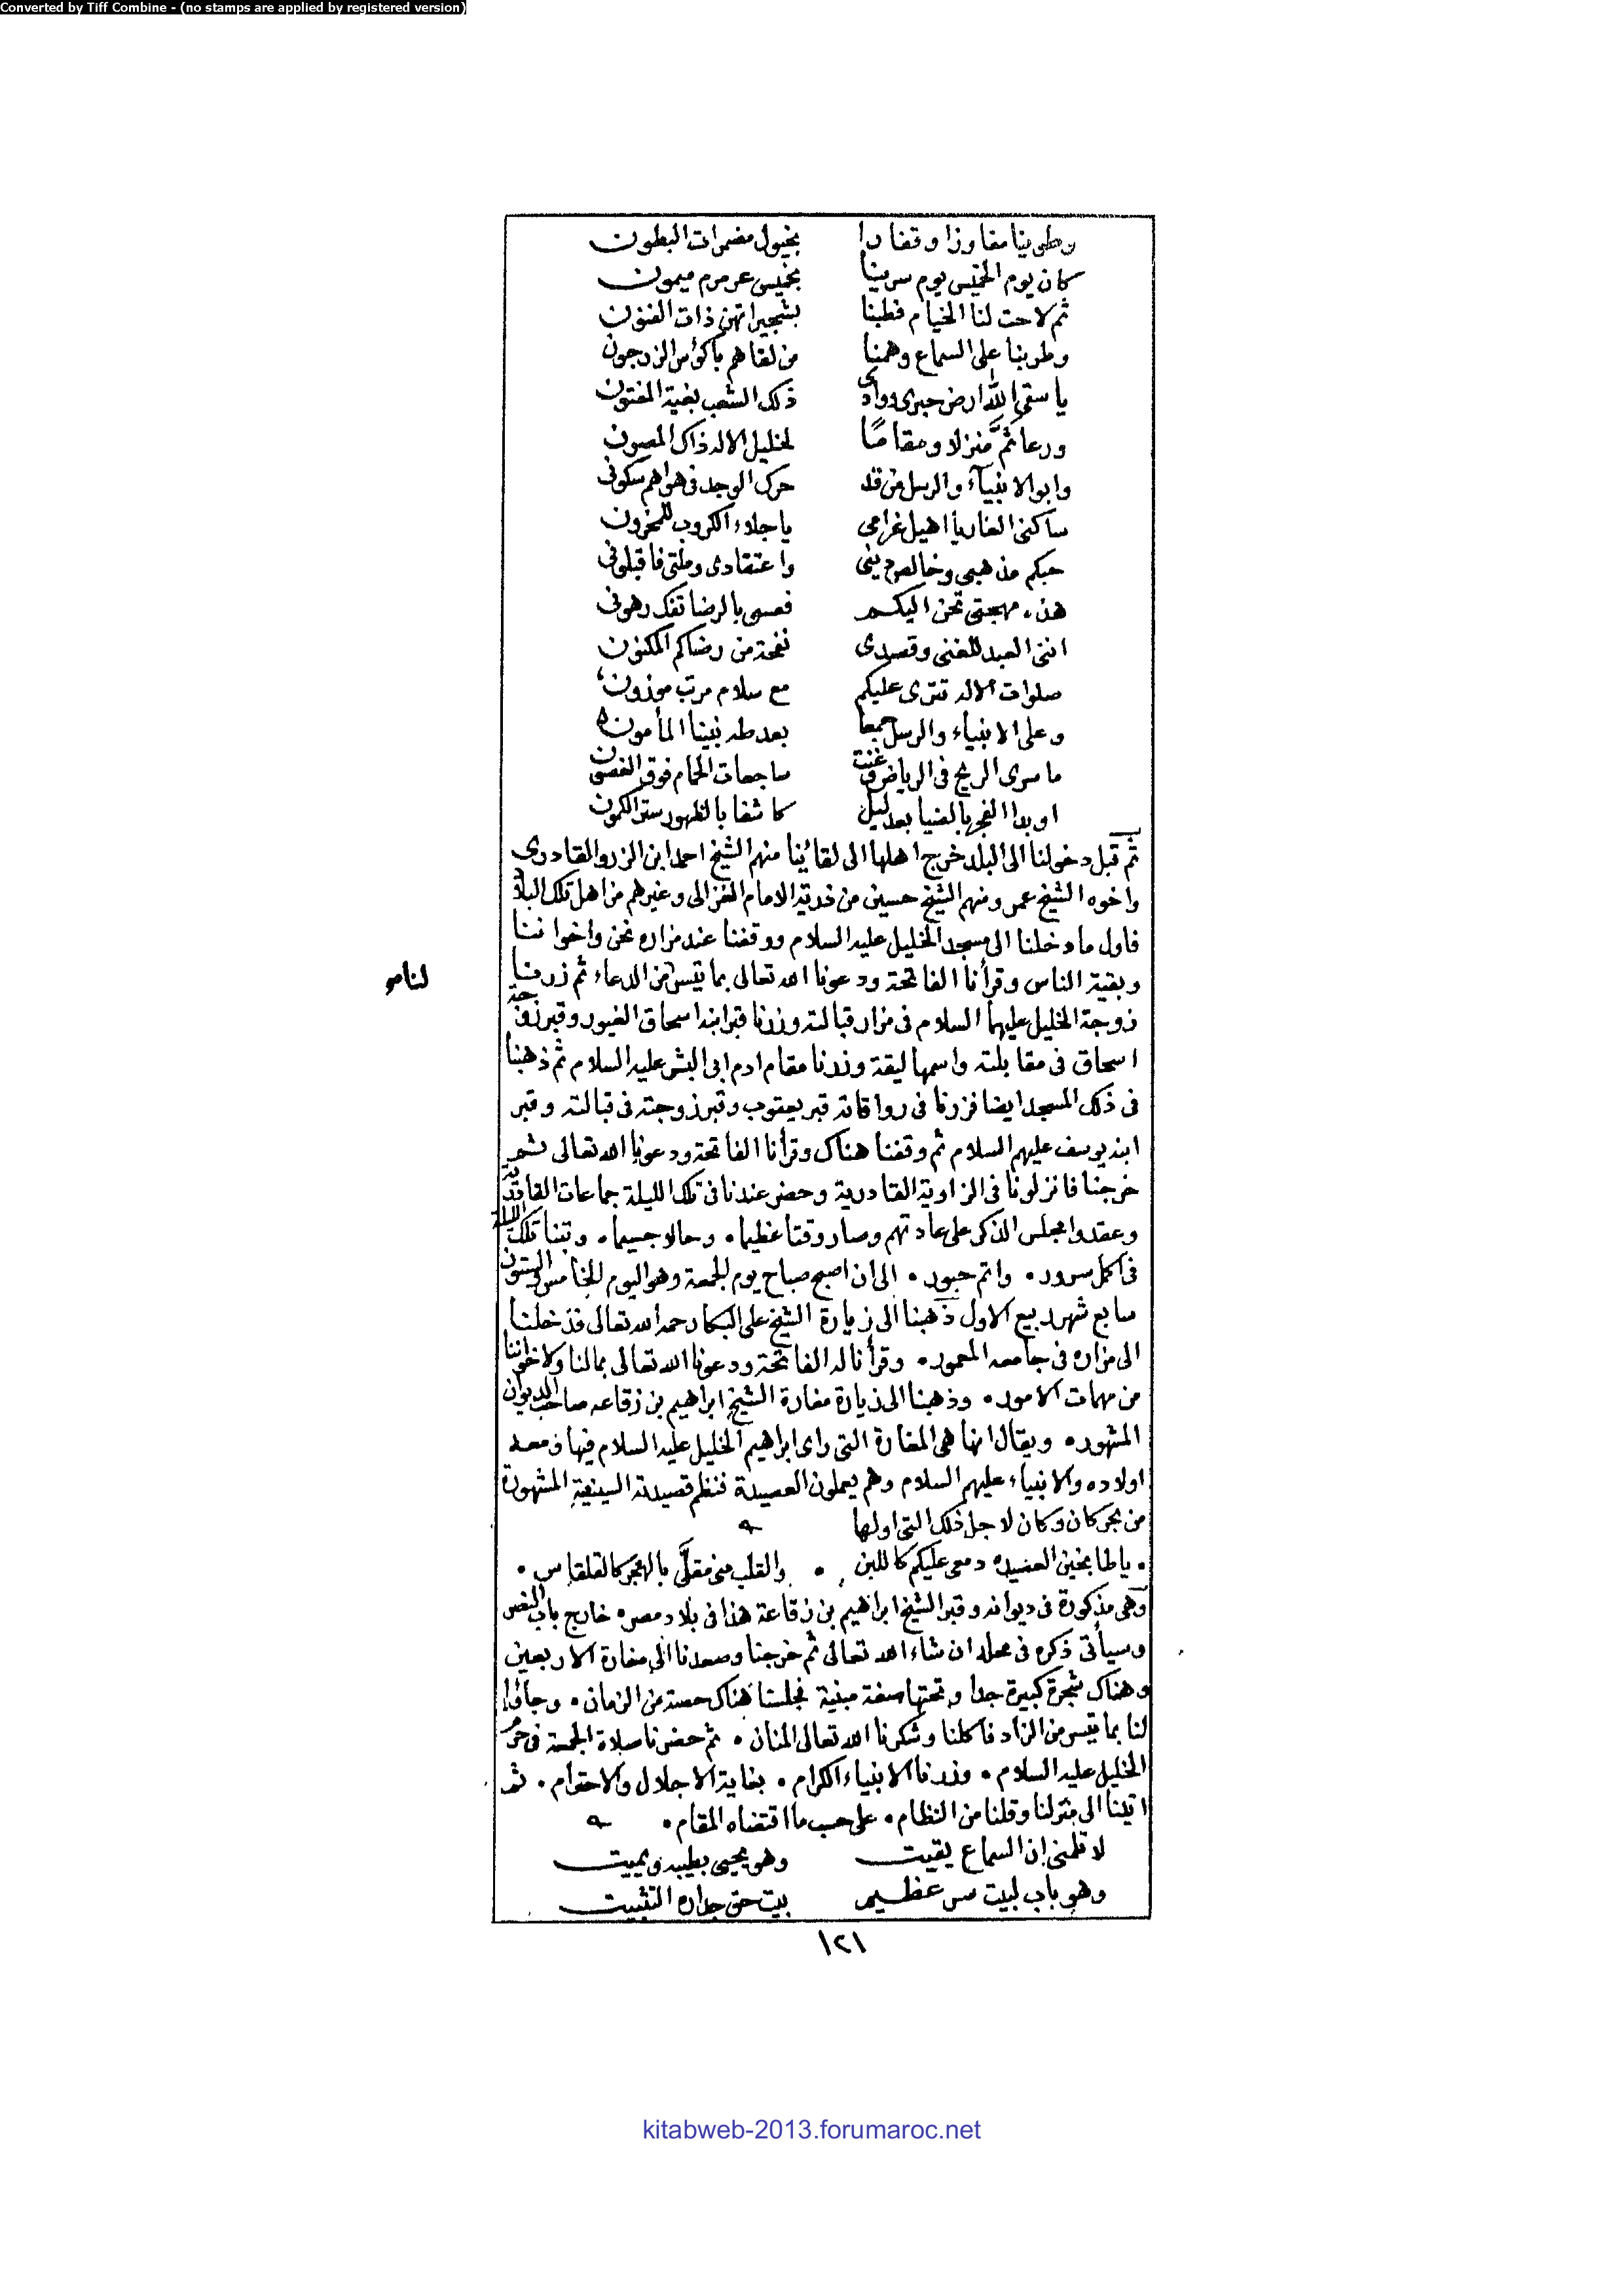 Converted by Tiff Combine - (no stamps are applied by registered version)
وطوينا مفاوزا وقفارا بخيول مضمرات البطون
كان يوم الخميس يوم سرينا بخميس عرمرم ميمون
ثم لاحت لنا الخيام فطبنا ذات الفنون
وطربنا على السماع وهمنا من لقاهم باكؤس الزرجون
يا سقى الله ارض حبرى ووادى ذلك الشعب بغية المفتون
ورعا ثمَّ منزلا ومقامًا لخليل الاله ذاك المصون
وابو الانبيآء والرسل من قد حرك الوجد فى هواهم سكونى
ساكنى الغار يا اهيل غرامى يا جلاء الكروب للمحزون
حبكم مذهبى وخالص دينى واعتقادى وملتى فاقبلونى
هذه مهجتى تحن اليكم فعسى بالرضا تفك رهونى
اننى العبد للغنى وقصدى نفحة من رضاكم المكنون
صلوات الاله تترى عليكم مع سلام مرتب موزون
وعلى الانبياء والرسل جمعا بعد طه نبينا المأمون
ما سرى الريح فى الرياض وغنت ساجعات الحمام فوق الغصون
او بدا الفجر بالضيا بعد ليل كاشفا بالظهور ستر الكمون
ثم قبل دخولنا الى البلد خرج اهلها الى لقائنا منهم الشيخ احمد ابن الزرو القادرى
واخوه الشيخ عمر ومنهم الشيخ حسين من ذرية الامام الغزالى وغيرهم من اهل تلك البلاد
فاول ما دخلنا الى مسجد الخليل عليه السلام ووقفنا عند مزاره نحن واخواننا
وبقية الناس وقرأنا الفاتحة ودعونا الله تعالى بما تيسر من الدعاء ثم زرنا
زوجة الخليل عليهما السلام فى مزار قبالته وزرنا قبر ابنه اسحاق الغيور وقبر زوجة
اسحاق فى مقابلته واسمها ليقة وزرنا مقام ادم ابى البشر عليه السلام ثم ذهبنا
فى ذلك المسجد ايضا فزرنا فى رواقاته قبر يعقوب وقبر زوجته فى قبالته وقبر
ابنه يوسف عليهم السلام ثم وقفنا هناك وقرأنا الفاتحة ودعونا الله تعالى ثم
خرجنا فانزلونا فى الزاوية القادرية وحضر عندنا فى تلك الليلة جماعات القادرية
وعقدوا مجلس الذكر على عادتهم وصار وقتا عظيما ٠ وحالا جسيما ٠ وبتنا تلك الليلة
فى اكمل سرور ٠ واتم حبور ٠ الى ان اصبح صباح يوم الجمعة وهو اليوم الخامس والستون
سابع شهر ربيع الاول ذهبنا الى زيارة الشيخ على البكا رحمه الله تعالى فدخلنا
الى مزاره فى جامعه المعمور ٠ وقرأنا له الفاتحة ودعونا الله تعالى بما لنا ولاخواننا
من مهمات الامور ٠ وذهبنا الى زيارة مغارة الشيخ ابراهيم بن زقاعه صاحب الديوان
المشهور ٠ ويقال انها هى المغارة التى راى ابراهيم الخليل عليه السلام فيها ومعه
اولاده والانبياء عليهم السلام وهم يعملون العصيدة فنظم قصيدته السينية المشهورة
من بحر كان وكان لاجل ذلك التى اولها
٠ يا طابخين العصيده دمعى عليكم كاللبن ٠ والقلب منى مقلَّى بالهجر كالقلقاس ٠
وهى مذكورة فى ديوانه وقبر الشيخ ابراهيم بن زقاعة هذا فى بلاد مصر خارج باب النصر
وسيأتى ذكره فى محله ان شاء الله تعالى ثم خرجنا وصعدنا الى مغارة الاربعين
وهناك شجرة كبيرة جدا وتحتها صفة مبنية فجلسنا هناك حصة من الزمان ٠ وجاؤا
لنا بما تيسر من الزاد فاكلنا وشكرنا الله تعالى المنان ٠ ثم حضرنا صلاة الجمعة فى حرم
الخليل عليه السلام ٠ وزرنا الانبياء الكرام ٠ بغاية الاجلال والاحترام ٠ ثم
اتينا الى منزلنا وقلنا من النظام ٠ على حسب ما اقتضاه المقام ٠
لا تلمنى ان السماع يقيت وهو يحيى بطيبه ويميت
وهو باب لبيت سر عظيم بيت حق جداره التثبيت
١٢١
kitabweb-2013.forumaroc.net